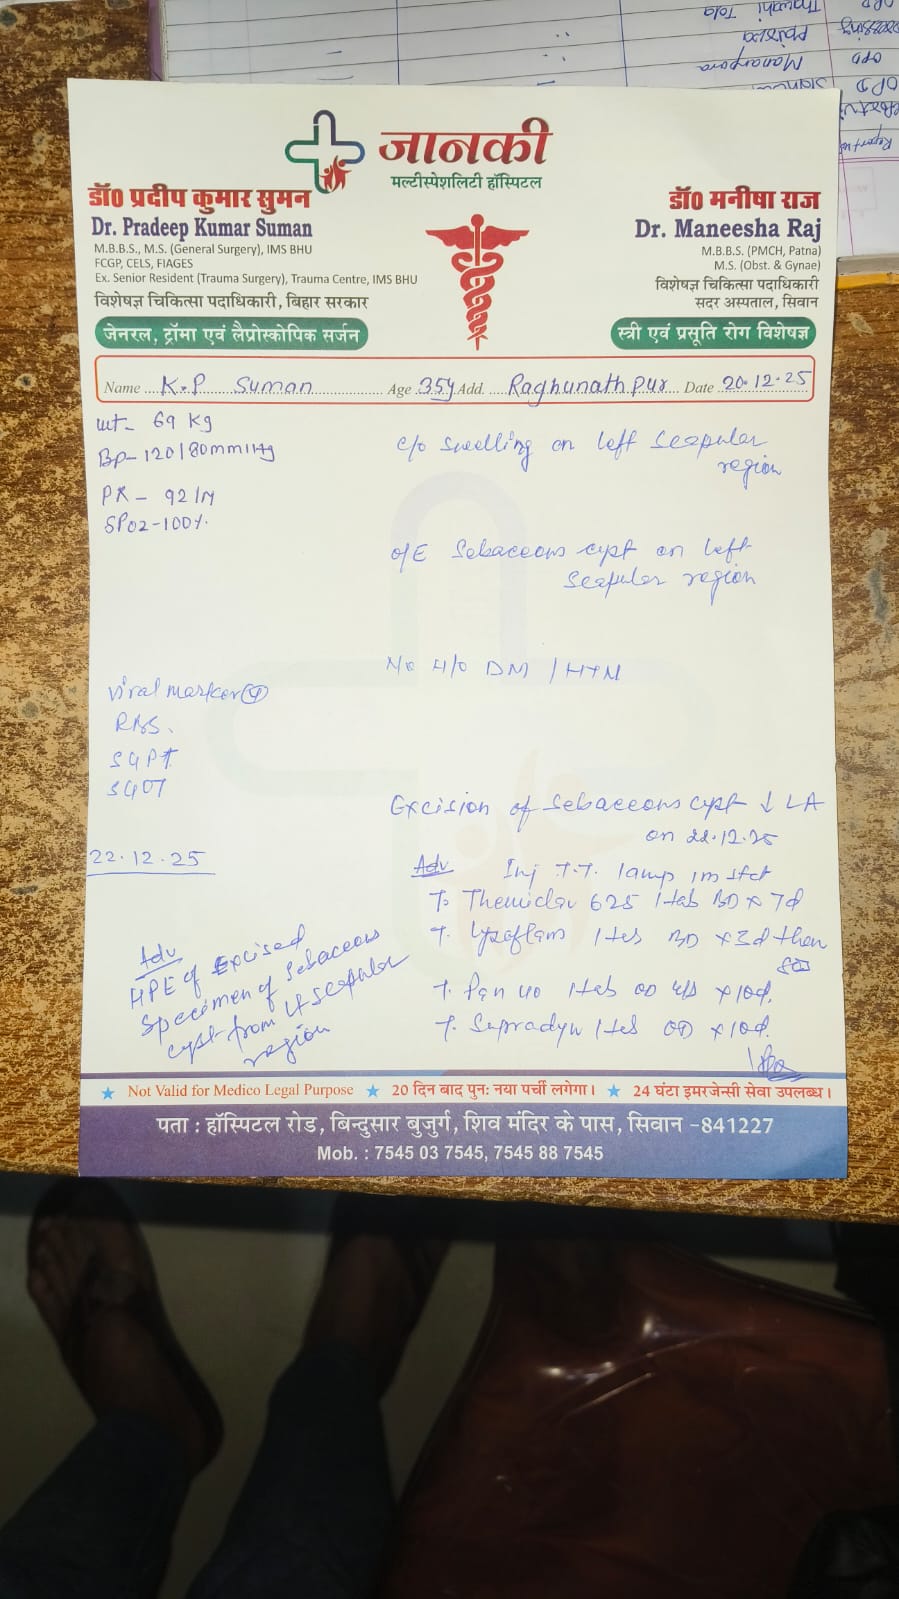 जानकी
मल्टीस्पेशलिटी हॉस्पिटल
डॉ0 प्रदीप कुमार सुमन
Dr. Pradeep Kumar Suman
M.B.B.S., M.S. (General Surgery), IMS BHU
FCGP, CELS, FIAGES
Ex. Senior Resident (Trauma Surgery), Trauma Centre, IMS BHU
विशेषज्ञ चिकित्सा पदाधिकारी, बिहार सरकार
जेनरल, ट्रॉमा एवं लैप्रोस्कोपिक सर्जन
डॉ0 मनीषा राज
Dr. Maneesha Raj
M.B.B.S. (PMCH, Patna)
M.S. (Obst. & Gynae)
विशेषज्ञ चिकित्सा पदाधिकारी
सदर अस्पताल, सिवान
स्त्री एवं प्रसूति रोग विशेषज्ञ
Name K.P Suman Age 35y Add. Raghunathpur Date 20.12.25
wt- 69 Kg
Bp-120/80mmHg
PR- 92/M
SPO2-100%
c/o swelling on left scapular
region
O/E Sebaceous cyst on left
scapular region
No H/O DM / HTN
Viral marker
RBS.
SGPT
SGOT
Excision of Sebaceous cyst ↓ LA
on 22.12.25
22.12.25
Adv
HPE of Excised
Specimen of Sebaceous
cyst from Lt scapular
region
Adv Inj T.T. 1amp im stat
T. Themiclav 625 1tab BD x 7d
T. Lyzoflam 1tab BD x 3d then
SOS
T. Pan 40 1tab OD x 10d.
T. Supradyn 1tab OD x 10d.
★ Not Valid for Medico Legal Purpose ★ 20 दिन बाद पुन: नया पर्ची लगेगा। ★ 24 घंटा इमरजेन्सी सेवा उपलब्ध।
पता : हॉस्पिटल रोड, बिन्दुसार बुजुर्ग, शिव मंदिर के पास, सिवान -841227
Mob. : 7545 03 7545, 7545 88 7545